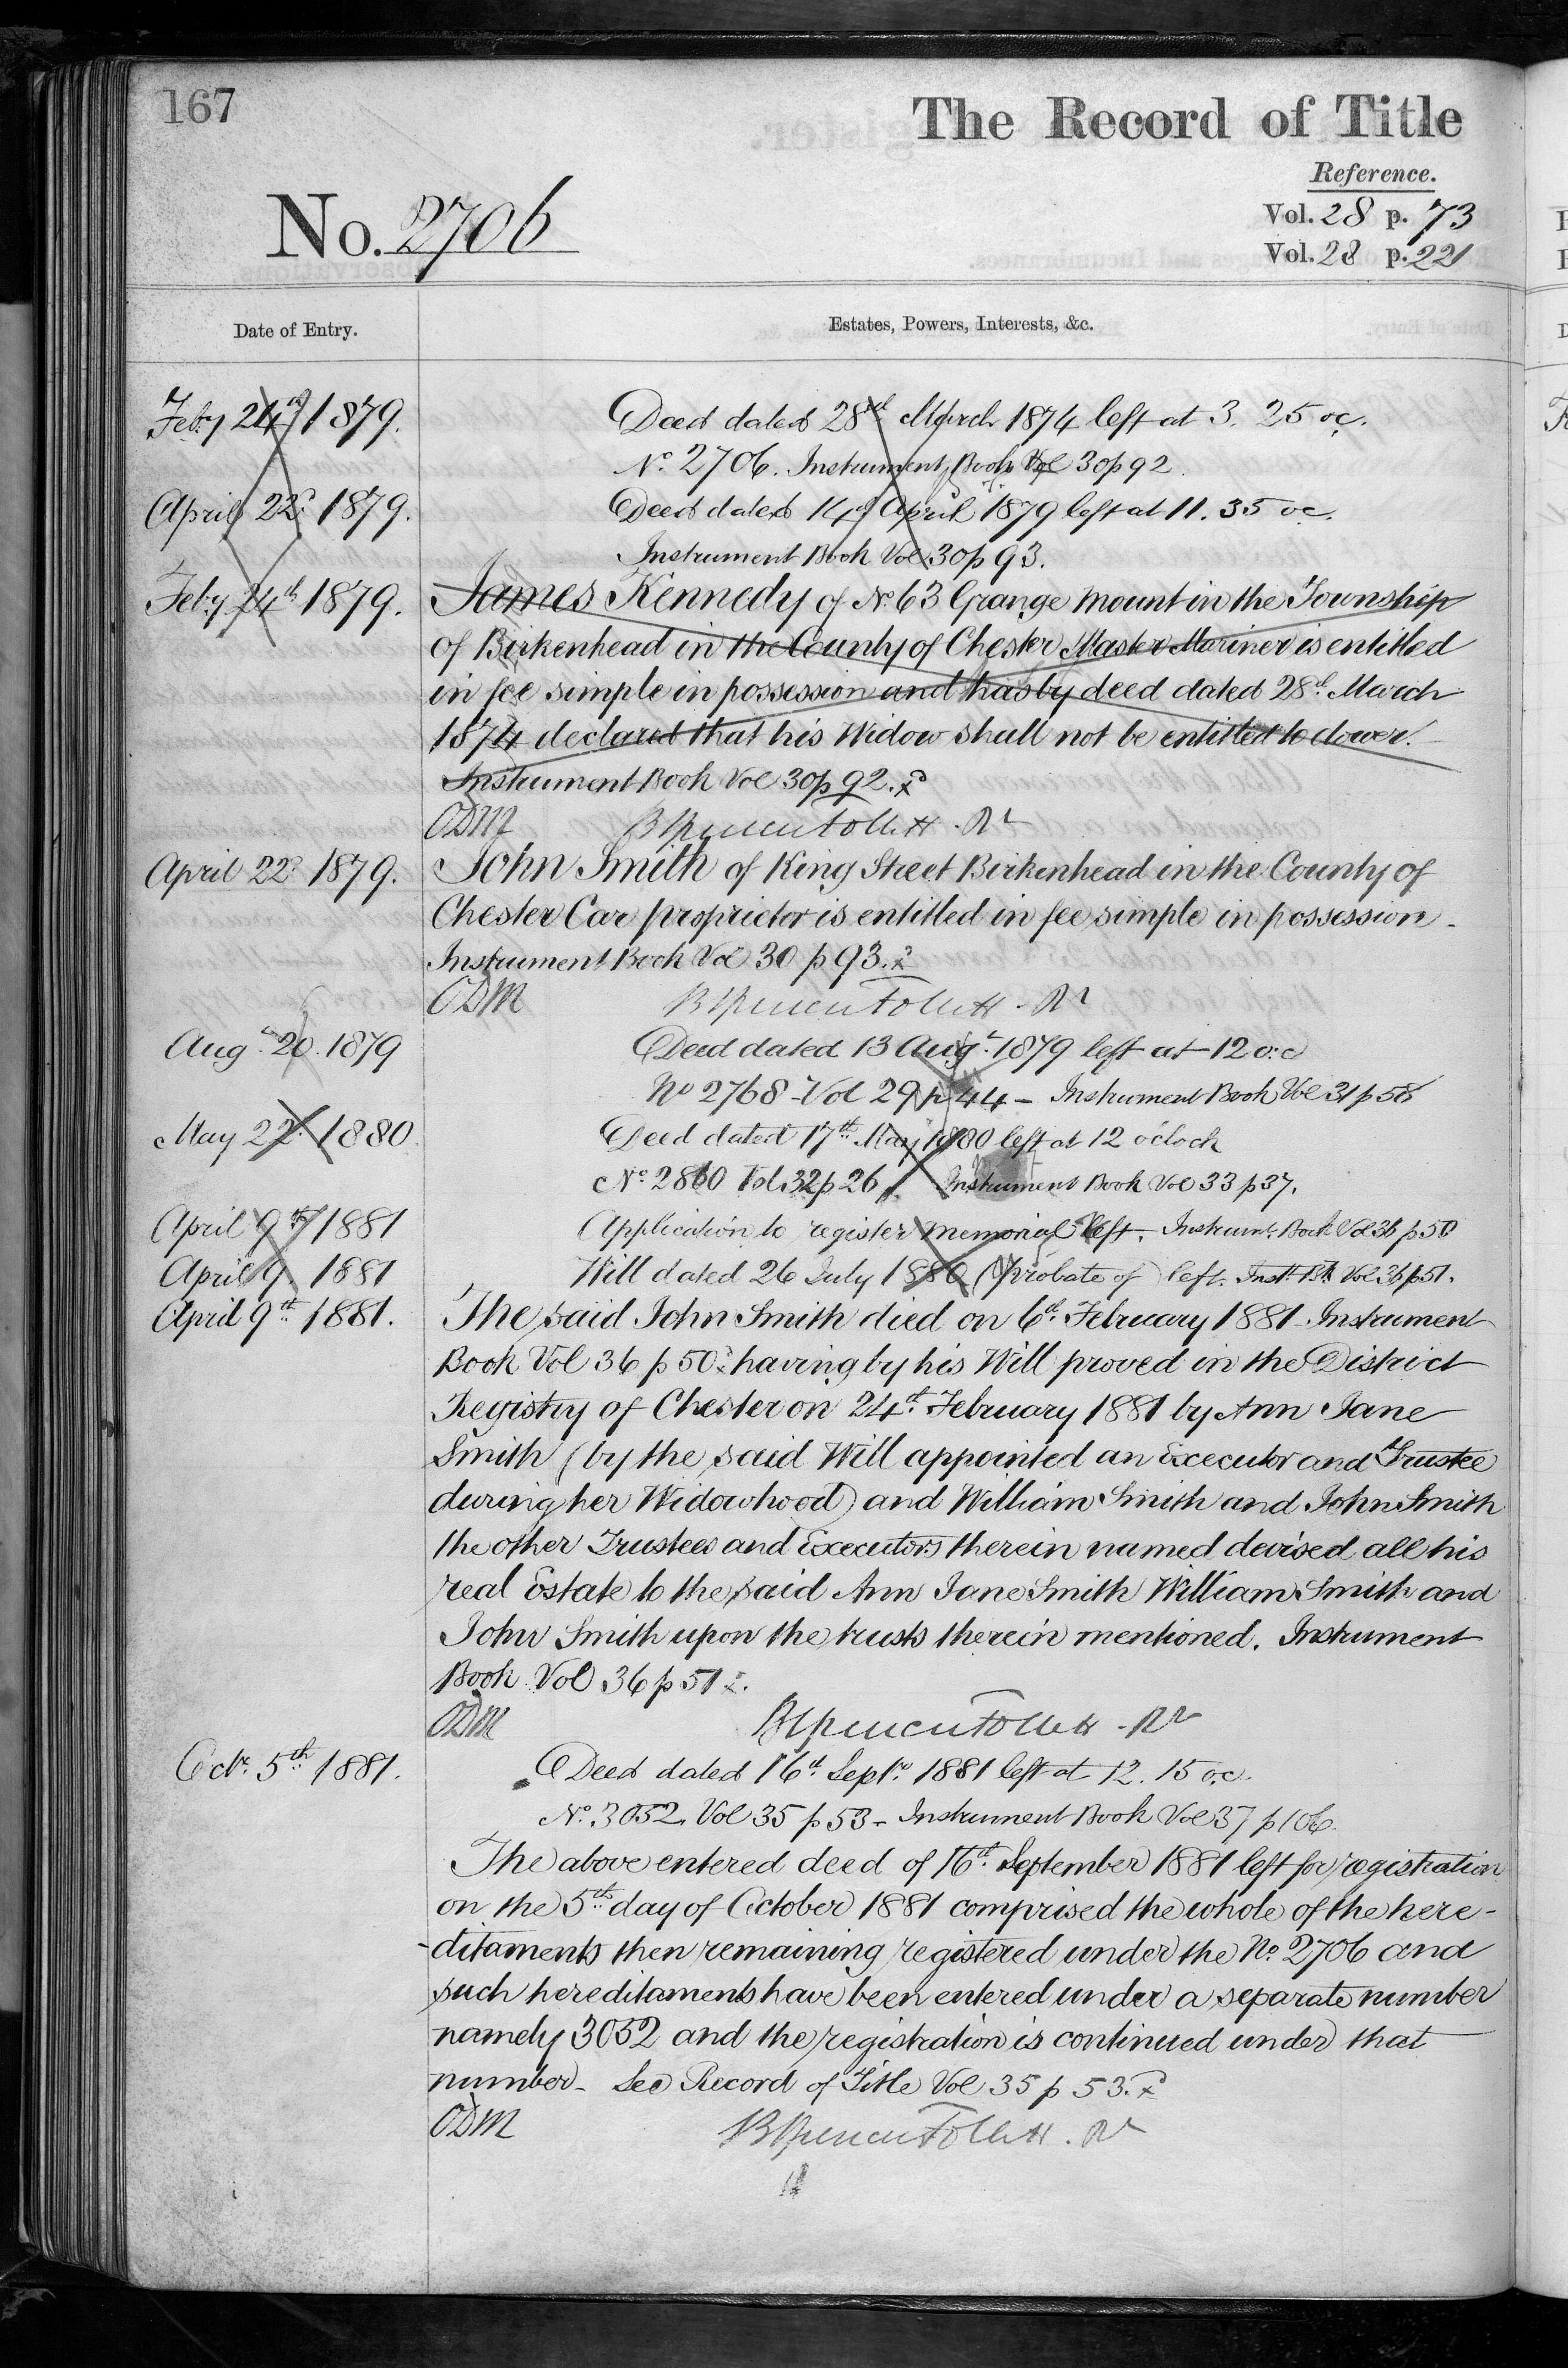 167
The Record of Title
Reference.
No. 2706
Vol. 28 p. 73
Vol. 28 p. 221
Date of Entry.
Estates, Powers, Interests, &c.
Feby 24th 1879. Deed dated 28th March 1874 left at 3. 25 oc.
No. 2706. Instrument Book Vol 30 p 92.
April 22d 1879. Deed dated 14th April 1879 left at 11. 35 oc.
Instrument Book Vol 30 p 93.
Feby 24th 1879. James Kennedy of No. 63 Grange mount in the Township
of Birkenhead in the County of Chester Master Mariner is entitled
in fee simple in possession and has by deed dated 28th March
1874 declared that his Widow shall not be entitled to dower.
Instrument Book Vol 30 p 92.
ODM
April 22d 1879. John Smith of King Street Birkenhead in the County of
Chester Car proprietor is entitled in fee simple in possession -
Instrument Book Vol 30 p 93.
ODM
Augt. 20. 1879 Deed dated 13 Augt. 1879 left at 12 o.c
No 2768 - Vol 29 p 44 - Instrument Book Vol 31 p 58
May 22. 1880. Deed dated 17th May 1880 left at 12 o'clock
No. 2860 Vol. 32 p 26 Instrument Book Vol 33 p 37.
April 9th 1881 Application to register memorial left. Instrumt. Book Vol 36 p 50
April 9. 1881 Will dated 26 July 1880 (Probate of) left. Instt. Bk Vol 36 p 51.
April 9th. 1881. The said John Smith died on 6th. February 1881 - Instrument
Book Vol 36 p 50 having by his Will proved in the District
Registry of Chester on 24th. February 1881 by Ann Jane
Smith (by the said Will appointed an Executor and Trustee
during her Widowhood) and William Smith and John Smith
the other Trustees and Executors therein named devised all his
real Estate to the said Ann Jane Smith William Smith and
John Smith upon the trusts therein mentioned. Instrument
Book Vol 36 p 51.
ODM
Octr. 5th 1881. Deed dated 16th. Septr. 1881 left at 12. 15 o.c.
No. 3052. Vol 35 p 53 - Instrument Book Vol 37 p 106.
The above entered deed of 16th. September 1881 left for registration
on the 5th day of October 1881 comprised the whole of the here-
-ditaments then remaining registered under the No. 2706 and
such hereditaments have been entered under a separate number
namely 3052 and the registration is continued under that
number - See Record of Title Vol 35 p 53.
ODM